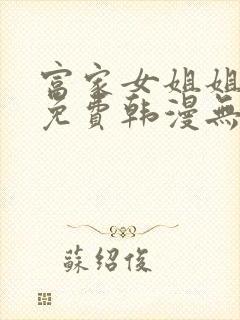 富家女姐姐
免費韩漫無
蘇紹俊